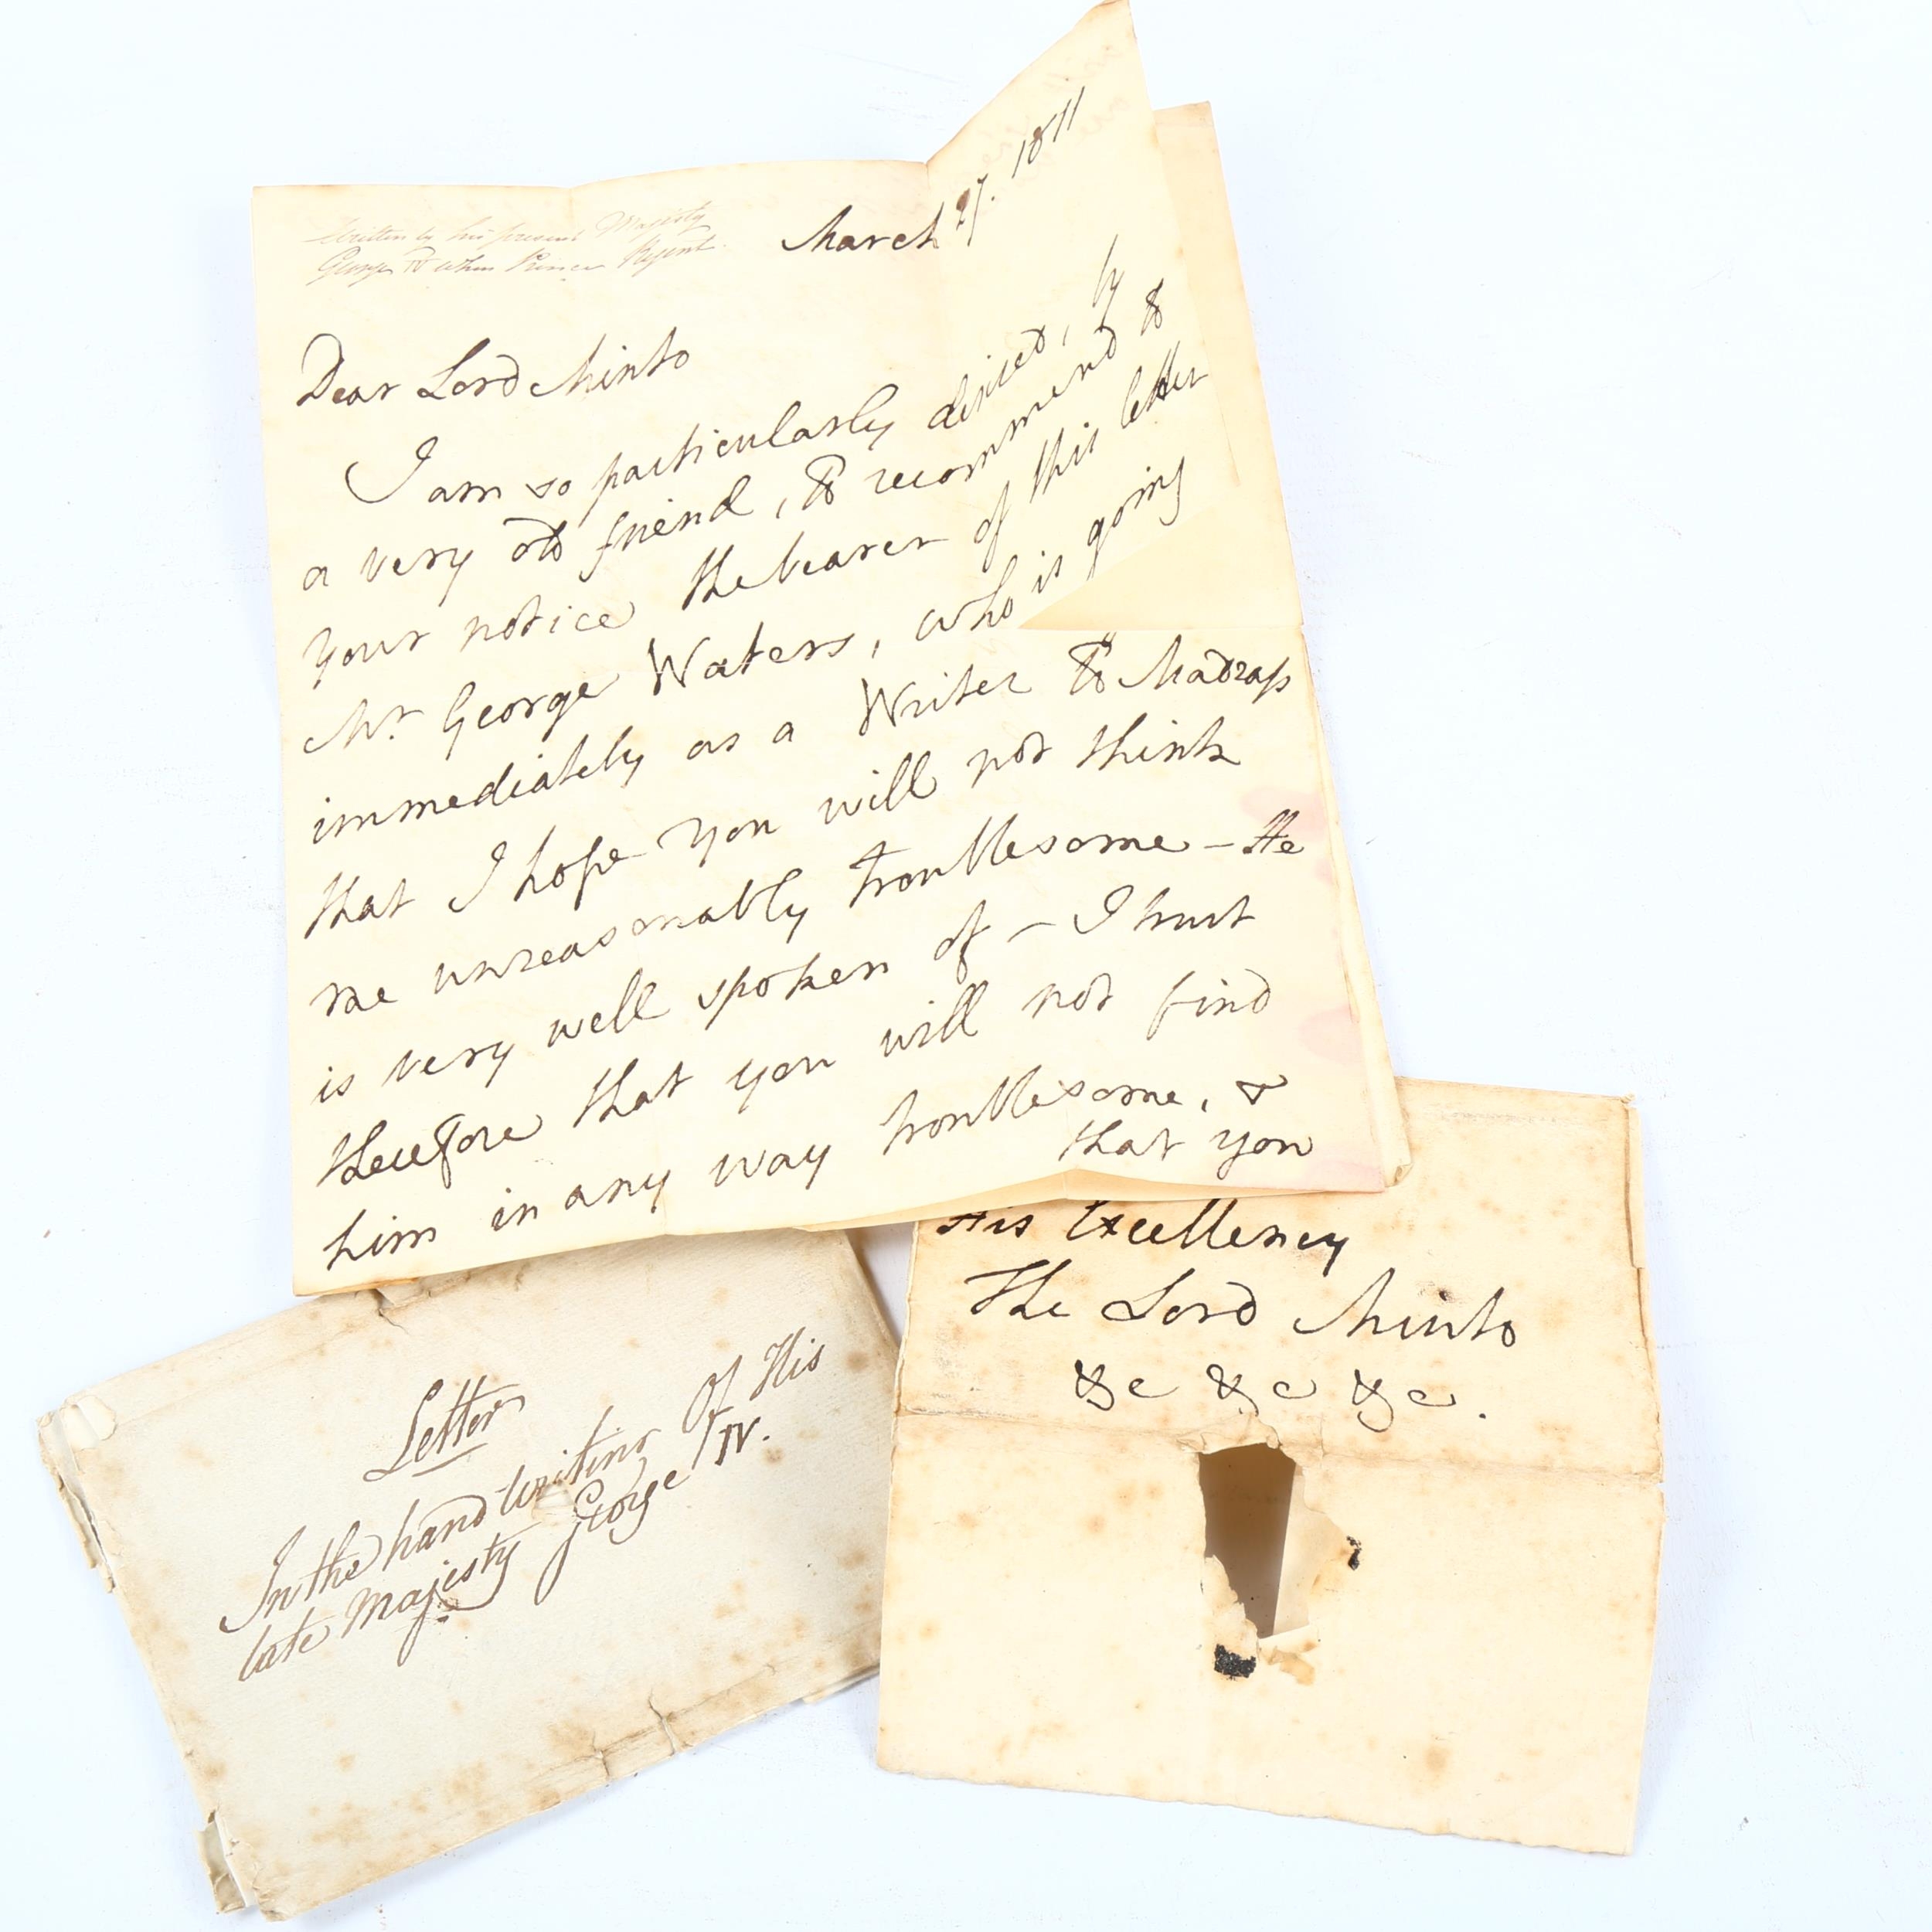 Written by his present Majesty
George IV when Prince Regent.
March 27. 1811
Dear Lord Minto
I am so particularly desired, by
a very old friend, to recommend to
your notice the bearer of this letter
Mr. George Waters, who is going
immediately as a Writer to Madrass
that I hope you will not think
me unreasonably troublesome – He
is very well spoken of – I trust
therefore that you will not find
him in any way troublesome, &
that you
His Excellency
The Lord Minto
&c &c &c.
Letter
In the hand writing Of His
late Majesty George IV.